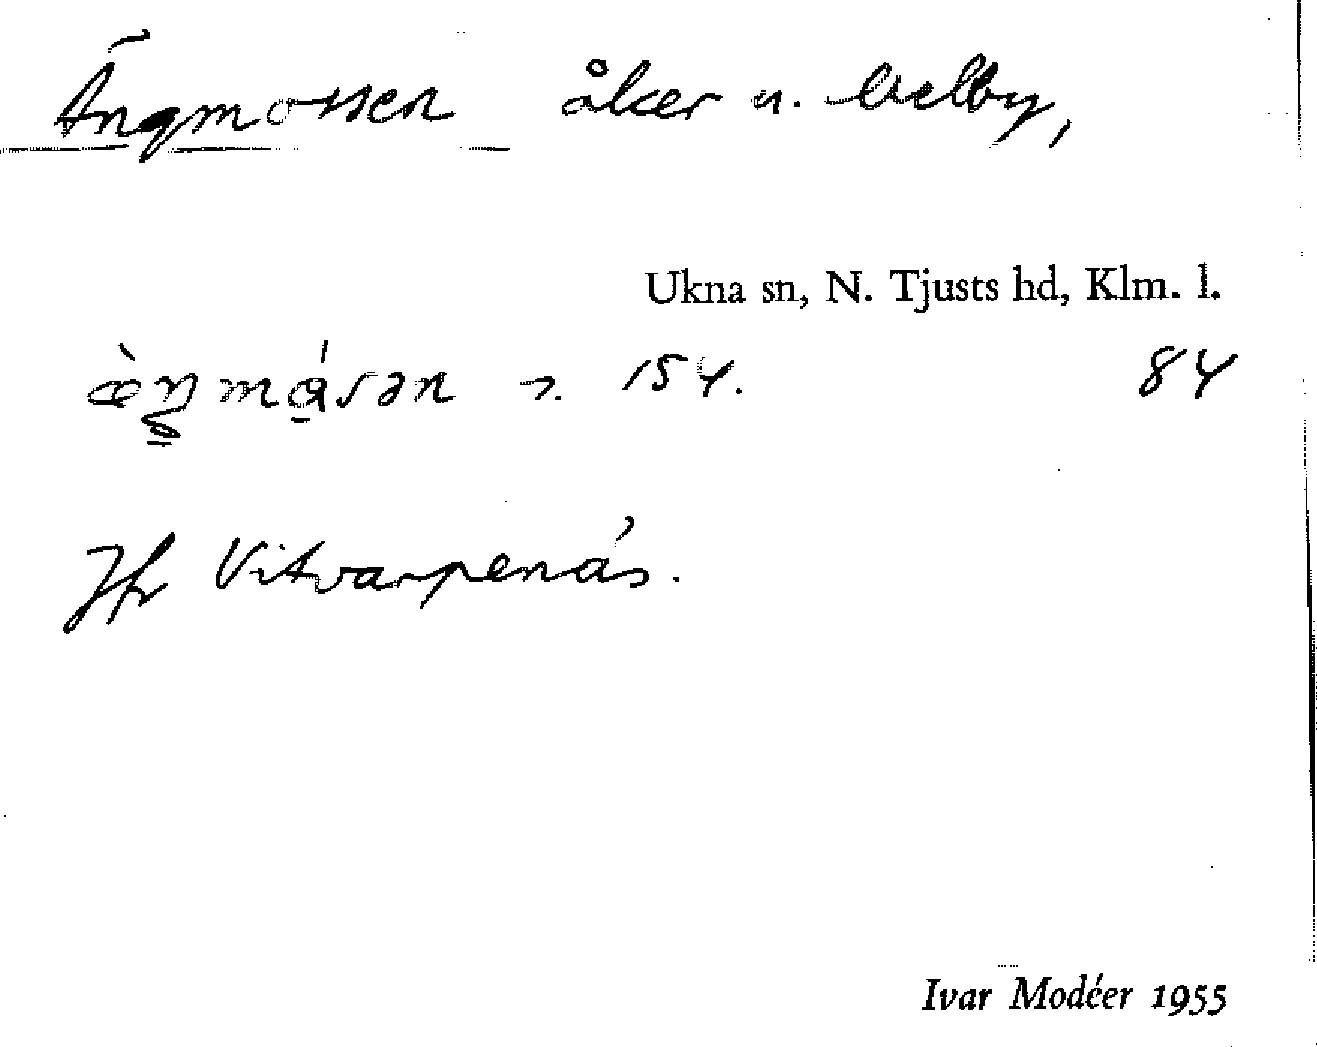 Ängmossen åker u. Melby,
Ukna sn, N. Tjusts hd, Klm. l.
154. 84
Jfr Vitvarpenäs.
Ivar Modéer 1955